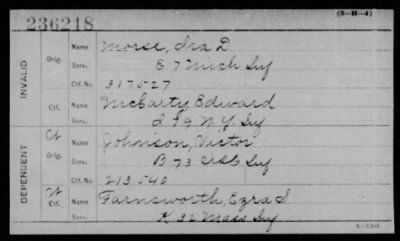 (3-H-4)
236218
INVALID
Orig. Name Morse, Ira D
Serv. E 7 Mich Inf
Ctf. No. 317527
Ctf. Name McCarty Edward
Serv. I 99 N.Y. Inf
DEPENDENT
Ct
Orig. Name Johnson, Victor
Serv. B. 73
Ctf. No. 213540
Ct
Ctf. Name Farnsworth, Ezra S
Serv. K 32 Mass Inf